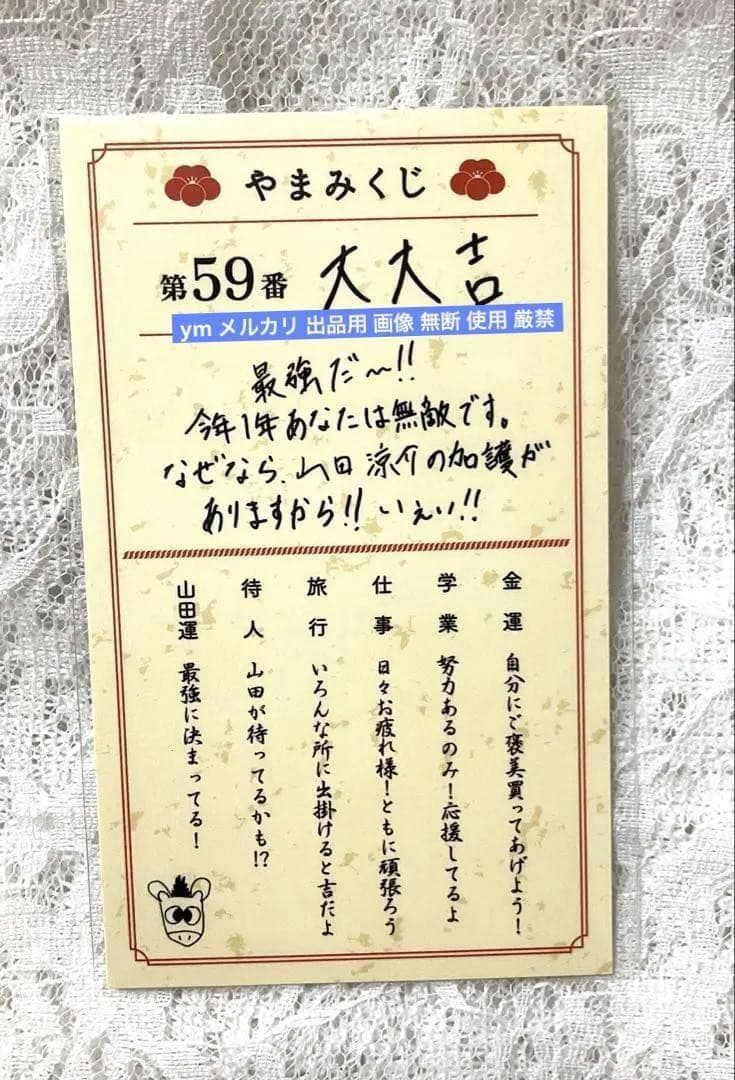 やまみくじ
第59番 大大吉
ym メルカリ 出品用 画像 無断 使用 厳禁
最強だ〜!!
今年1年あなたは無敵です。
なぜなら、山田涼介の加護が
ありますから!! いぇい!!
金運 自分にご褒美買ってあげよう!
学業 努力あるのみ!応援してるよ
仕事 日々お疲れ様!ともに頑張ろう
旅行 いろんな所に出掛けると吉だよ
待人 山田が待ってるかも!?
山田運 最強に決まってる!